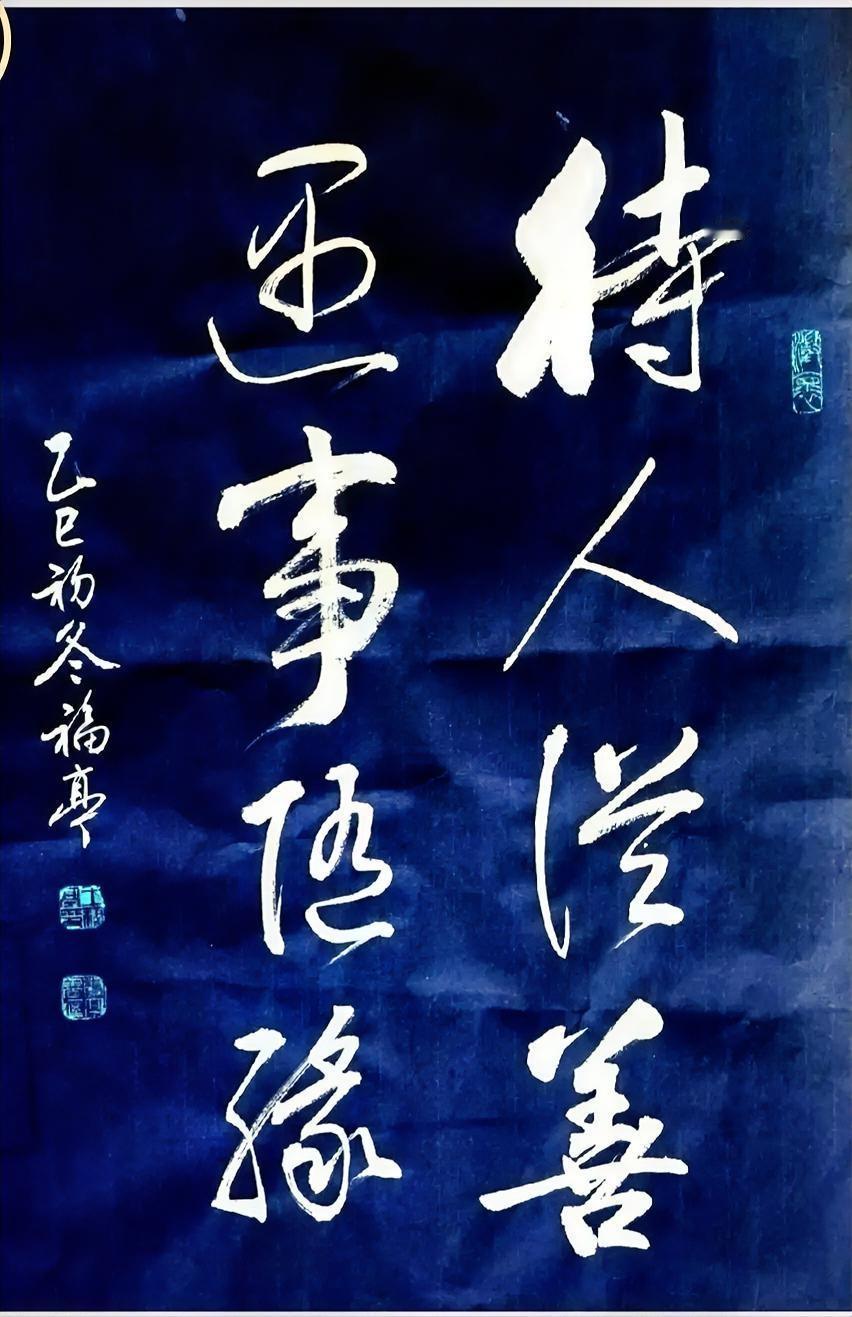 待人從善
遇事随缘
乙巳初冬福亭